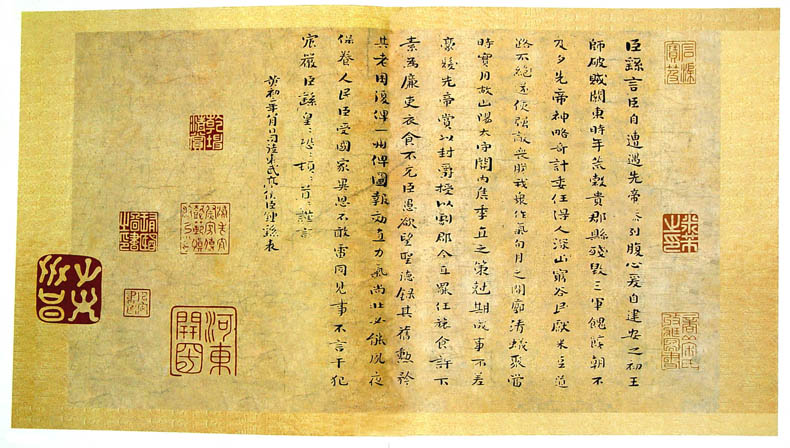 臣繇言臣自遭遇先帝忝列腹心爰自建安之初王
師破賊關東時年荒穀貴郡縣殘毀三軍餽饟朝不
及夕先帝神略奇計委任得人深山窮谷民獻米豆道
路不絕遂使強敵喪膽我眾作氣旬月之間廓清蟻聚當
時實用故山陽太守關內侯季直之策剋期成事不差
豪髮先帝賞以封爵授以劇郡今直罷任旅食許下
素為廉吏衣食不充臣愚欲望聖德錄其舊勳矜
其老困復俾一州俾圖報效直力氣尚壯必能夙夜
保養人民臣受國家異恩不敢雷同見事不言干犯
宸嚴臣繇皇々恐々頓々首々謹言
黃初二年八月日司徒東武亭侯臣鍾繇表
河東